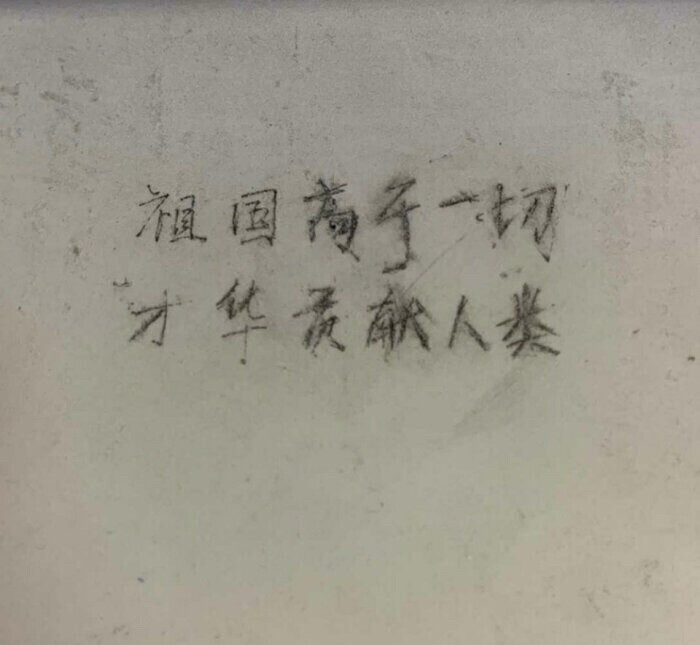 祖国高于一切
才华贡献人类